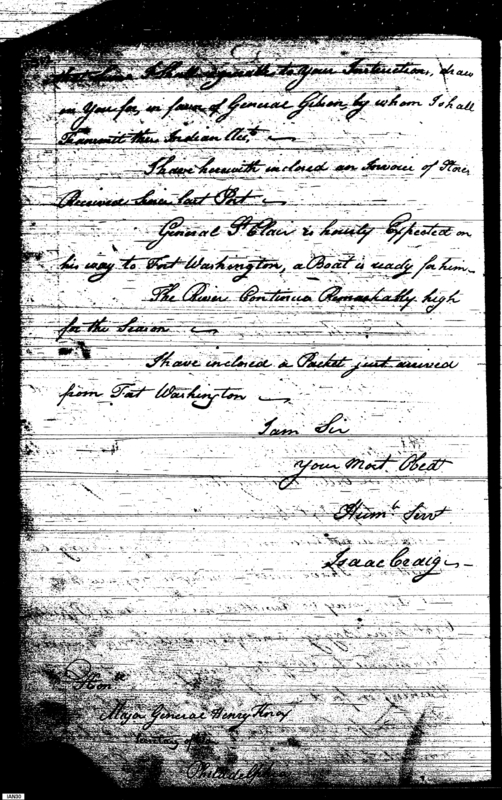 that Sum I Shall agreeable to Your Instructions, draw
on You for, in favor of General Gibson, by whom I shall
Transmit the Indian Acct.
I have herewith inclosed an Invoice of Stores
Received Since last Post
General St. Clair is hourly Expected on
his way to Fort Washington, a Boat is ready for him
The River Continues Remarkably high
for the Season
I have inclosed a Packet just arrived
from Fort Washington
I am Sir
Your Most Obedt
Humb. Servt
Isaac Craig
Honble
Major General Henry Knox
Secretary of War
Philadelphia
IAN30